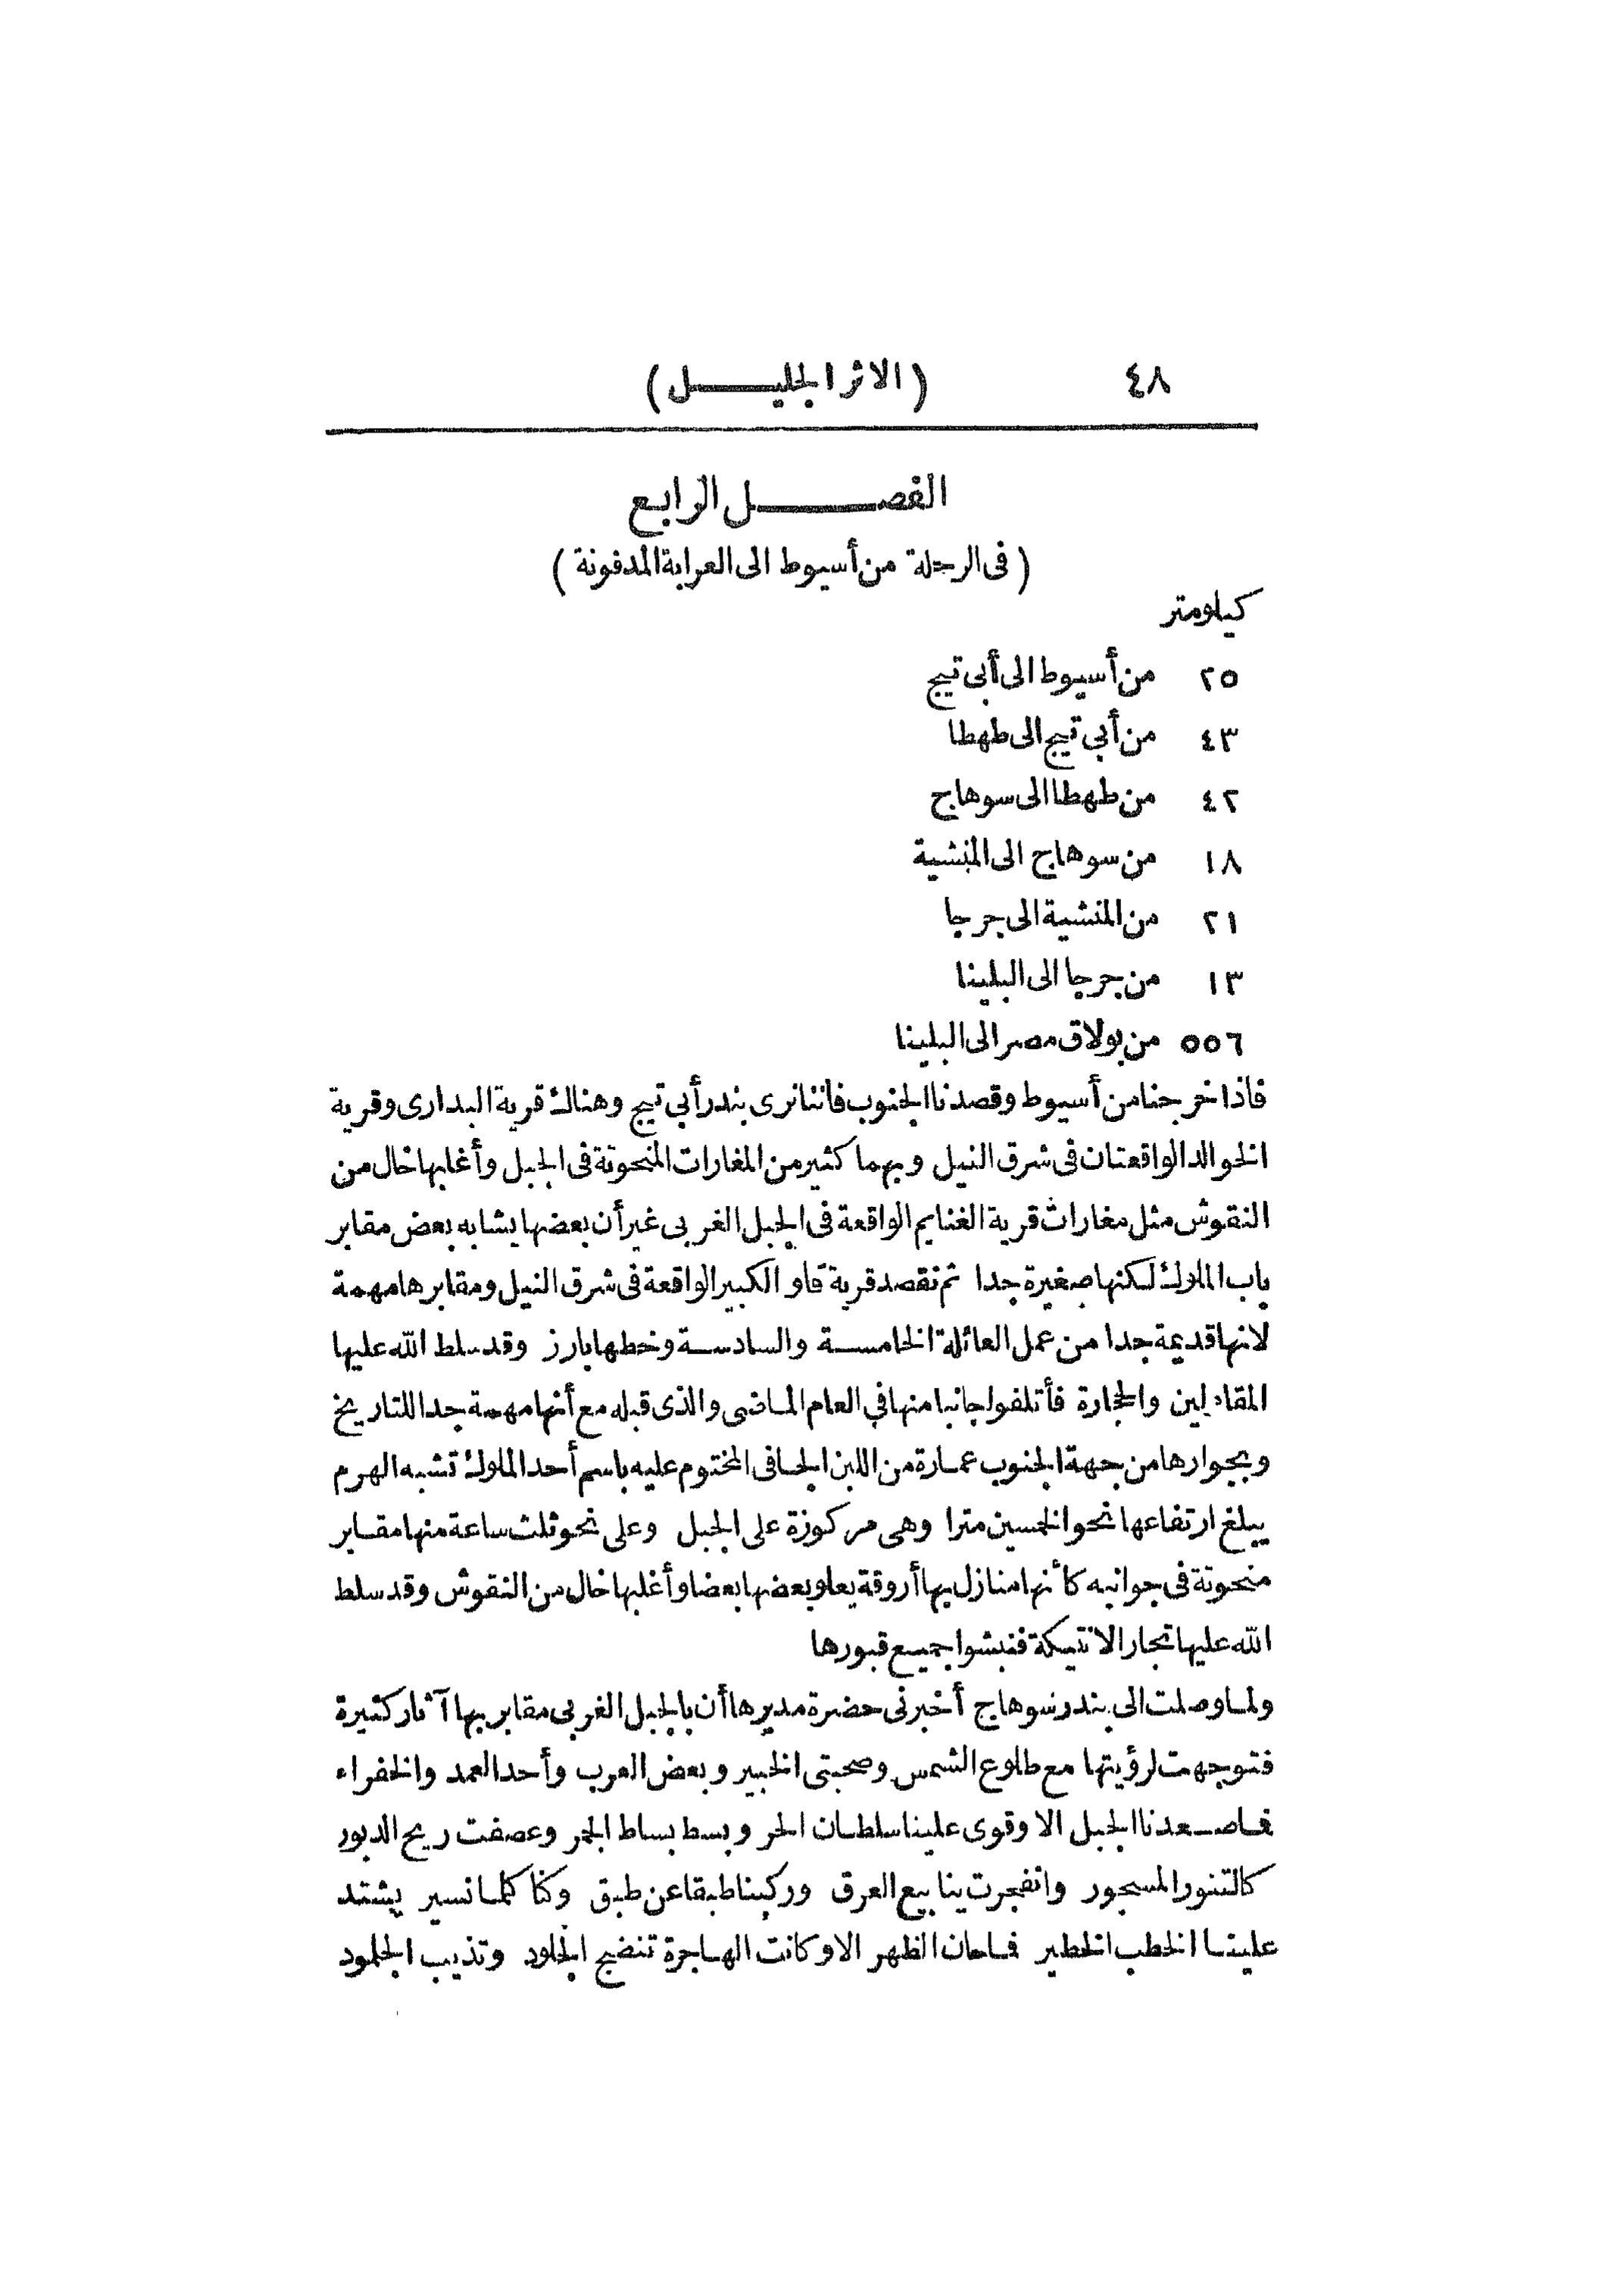 ٤٨ (الاثر الجليل)
الفصل الرابع
(فى الرحلة من أسيوط الى العرابة المدفونة)
كيلومتر
٢٥ من أسيوط الى أبى تيج
٤٣ من أبي تيج الى طهطا
٤٢ من طهطا الى سوهاج
١٨ من سوهاج الى المنشية
٢١ من المنشية الى جرجا
١٣ من جرجا الى البلينا
٥٥٦ من بولاق مصر الى البلينا
فاذا خرجنا من أسيوط وقصدنا الجنوب فاننا نرى بندر أبي تيج وهناك قرية البدارى وقرية
الخوالد الواقعتان فى شرق النيل وبهما كثير من المغارات المنحوتة فى الجبل وأغلبها خال من
النقوش مثل مغارات قرية الغنايم الواقعة فى الجبل الغربى غير أن بعضها يشابه بعض مقابر
باب الملوك لكنها صغيرة جدا ثم نقصد قرية قاو الكبير الواقعة فى شرق النيل ومقابرها مهمة
لانها قديمة جدا من عمل العائلة الخامسة والسادسة وخطها بارز وقد سلط الله عليها
المقاولين والحجارة فأتلفوا جانبا منها في العام الماضى والذى قبله مع أنها مهمة جدا للتاريخ
وبجوارها من جهة الجنوب عمارة من اللبن الجافى المختوم عليه باسم أحد الملوك تشبه الهرم
يبلغ ارتفاعها نحو الخمسين مترا وهى مركوزة على الجبل وعلى نحو ثلث ساعة منها مقابر
منحوتة فى جوانبه كأنها منازل بها أروقة يعلو بعضها بعضا وأغلبها خال من النقوش وقد سلط
الله عليها تجار الانتيكة فنبشوا جميع قبورها
ولما وصلت الى بندر سوهاج أخبرنى حضرة مديرها أن بالجبل الغربى مقابر بها آثار كثيرة
فتوجهت لرؤيتها مع طلوع الشمس وصحبتى الخبير وبعض العرب وأحد العمد والخفراء
فما صعدنا الجبل الا وقوى علينا سلطان الحر وبسط بساط الجمر وعصفت ريح الدبور
كالتنور المسجور وانفجرت ينابيع العرق وركبنا طبقا عن طبق وكنا كلما نسير يشتد
علينا الخطب الخطير فما حان الظهر الا وكانت الهاجرة تنضج الجلود وتذيب الجلمود